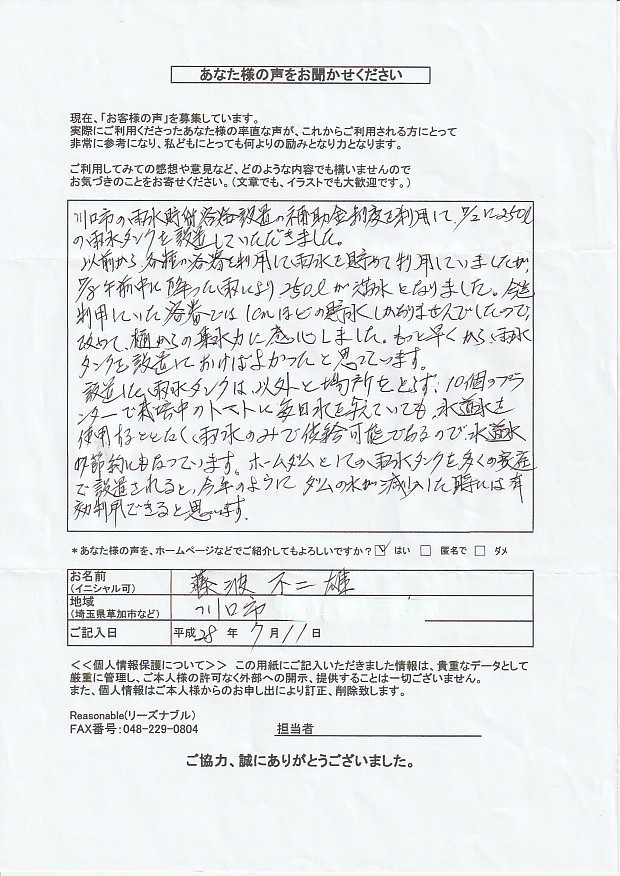 あなた様の声をお聞かせください
現在、「お客様の声」を募集しています。
実際にご利用くださったあなた様の率直な声が、これからご利用される方にとって
非常に参考になり、私どもにとっても何よりの励みとなり力となります。
ご利用してみての感想や意見など、どのような内容でも構いませんので
お気づきのことをお寄せください。（文章でも、イラストでも大歓迎です。）
川口市の雨水貯留容器設置の補助金制度を利用して、7/2に250ℓ
の雨水タンクを設置していただきました。
以前から、各種の容器を利用して、雨水を貯めて利用していましたが、
7/9午前中に降った雨により、250ℓが満水となりました。今迄
利用していた容器では10ℓほどの貯水しかありませんでしたので、
改めて、樋からの集水力に感心しました。もっと早くから、雨水
タンクを設置しておけばよかったと思っています。
設置した雨水タンクは、以外と場所をとらず、10個のプラ
ンターで栽培中のトマトに毎日水を与えていても、水道水を
使用することなく、雨水のみで供給可能であるので、水道水
の節約にもなっています。ホームダムとしての雨水タンクを多くの家庭
で設置されると、今年のように ダムの水が減少した時には有
効利用できると思います。
*あなた様の声を、ホームページなどでご紹介してもよろしいですか？ ☑ はい □ 匿名で □ ダメ
お名前
(イニシャル可) 藤波 不二雄
地域
(埼玉県草加市など) 川口市
ご記入日 平成 28 年 7 月 11 日
<<個人情報保護について>> この用紙にご記入いただきました情報は、貴重なデータとして
厳重に管理し、ご本人様の許可なく外部への開示、提供することは一切ございません。
また、個人情報はご本人様からのお申し出により訂正、削除致します。
Reasonable(リーズナブル)
FAX番号：048-229-0804 担当者
ご協力、誠にありがとうございました。